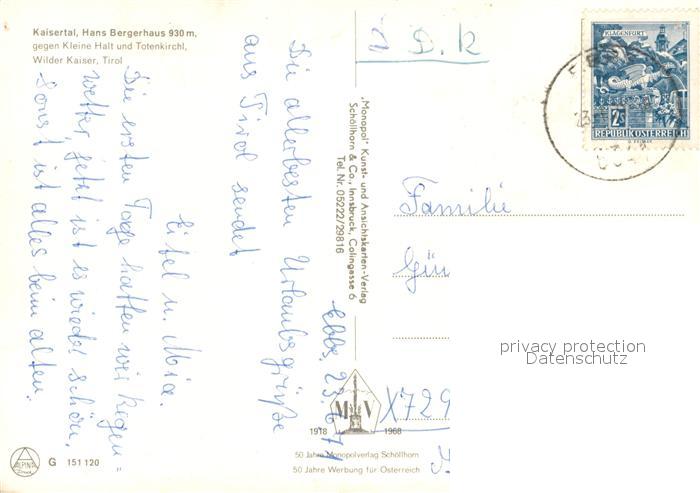 Kaisertal, Hans Bergerhaus 930 m,
gegen Kleine Halt und Totenkirchl,
Wilder Kaiser, Tirol
Ebbs, 23.6.71
Die allerbesten Urlaubsgrüße
aus Tirol sendet
Eitel u. Mia.
Die ersten Tage hatten wir Regen=
wetter, jetzt ist es wieder schön,
sonst ist alles beim alten.
ALPINA
G 151 120
Monopol" Kunst- und Ansichtskarten-Verlag
Schöllhorn & Co., Innsbruck, Colingasse 6
Tel. Nr. 05222/29816
M V
1918 1968
50 Jahre Monopolverlag Schöllhorn
50 Jahre Werbung für Österreich
KLAGENFURT
2S
REPUBLIK ÖSTERREICH
Familie
Gün
X729
privacy protection
Datenschutz